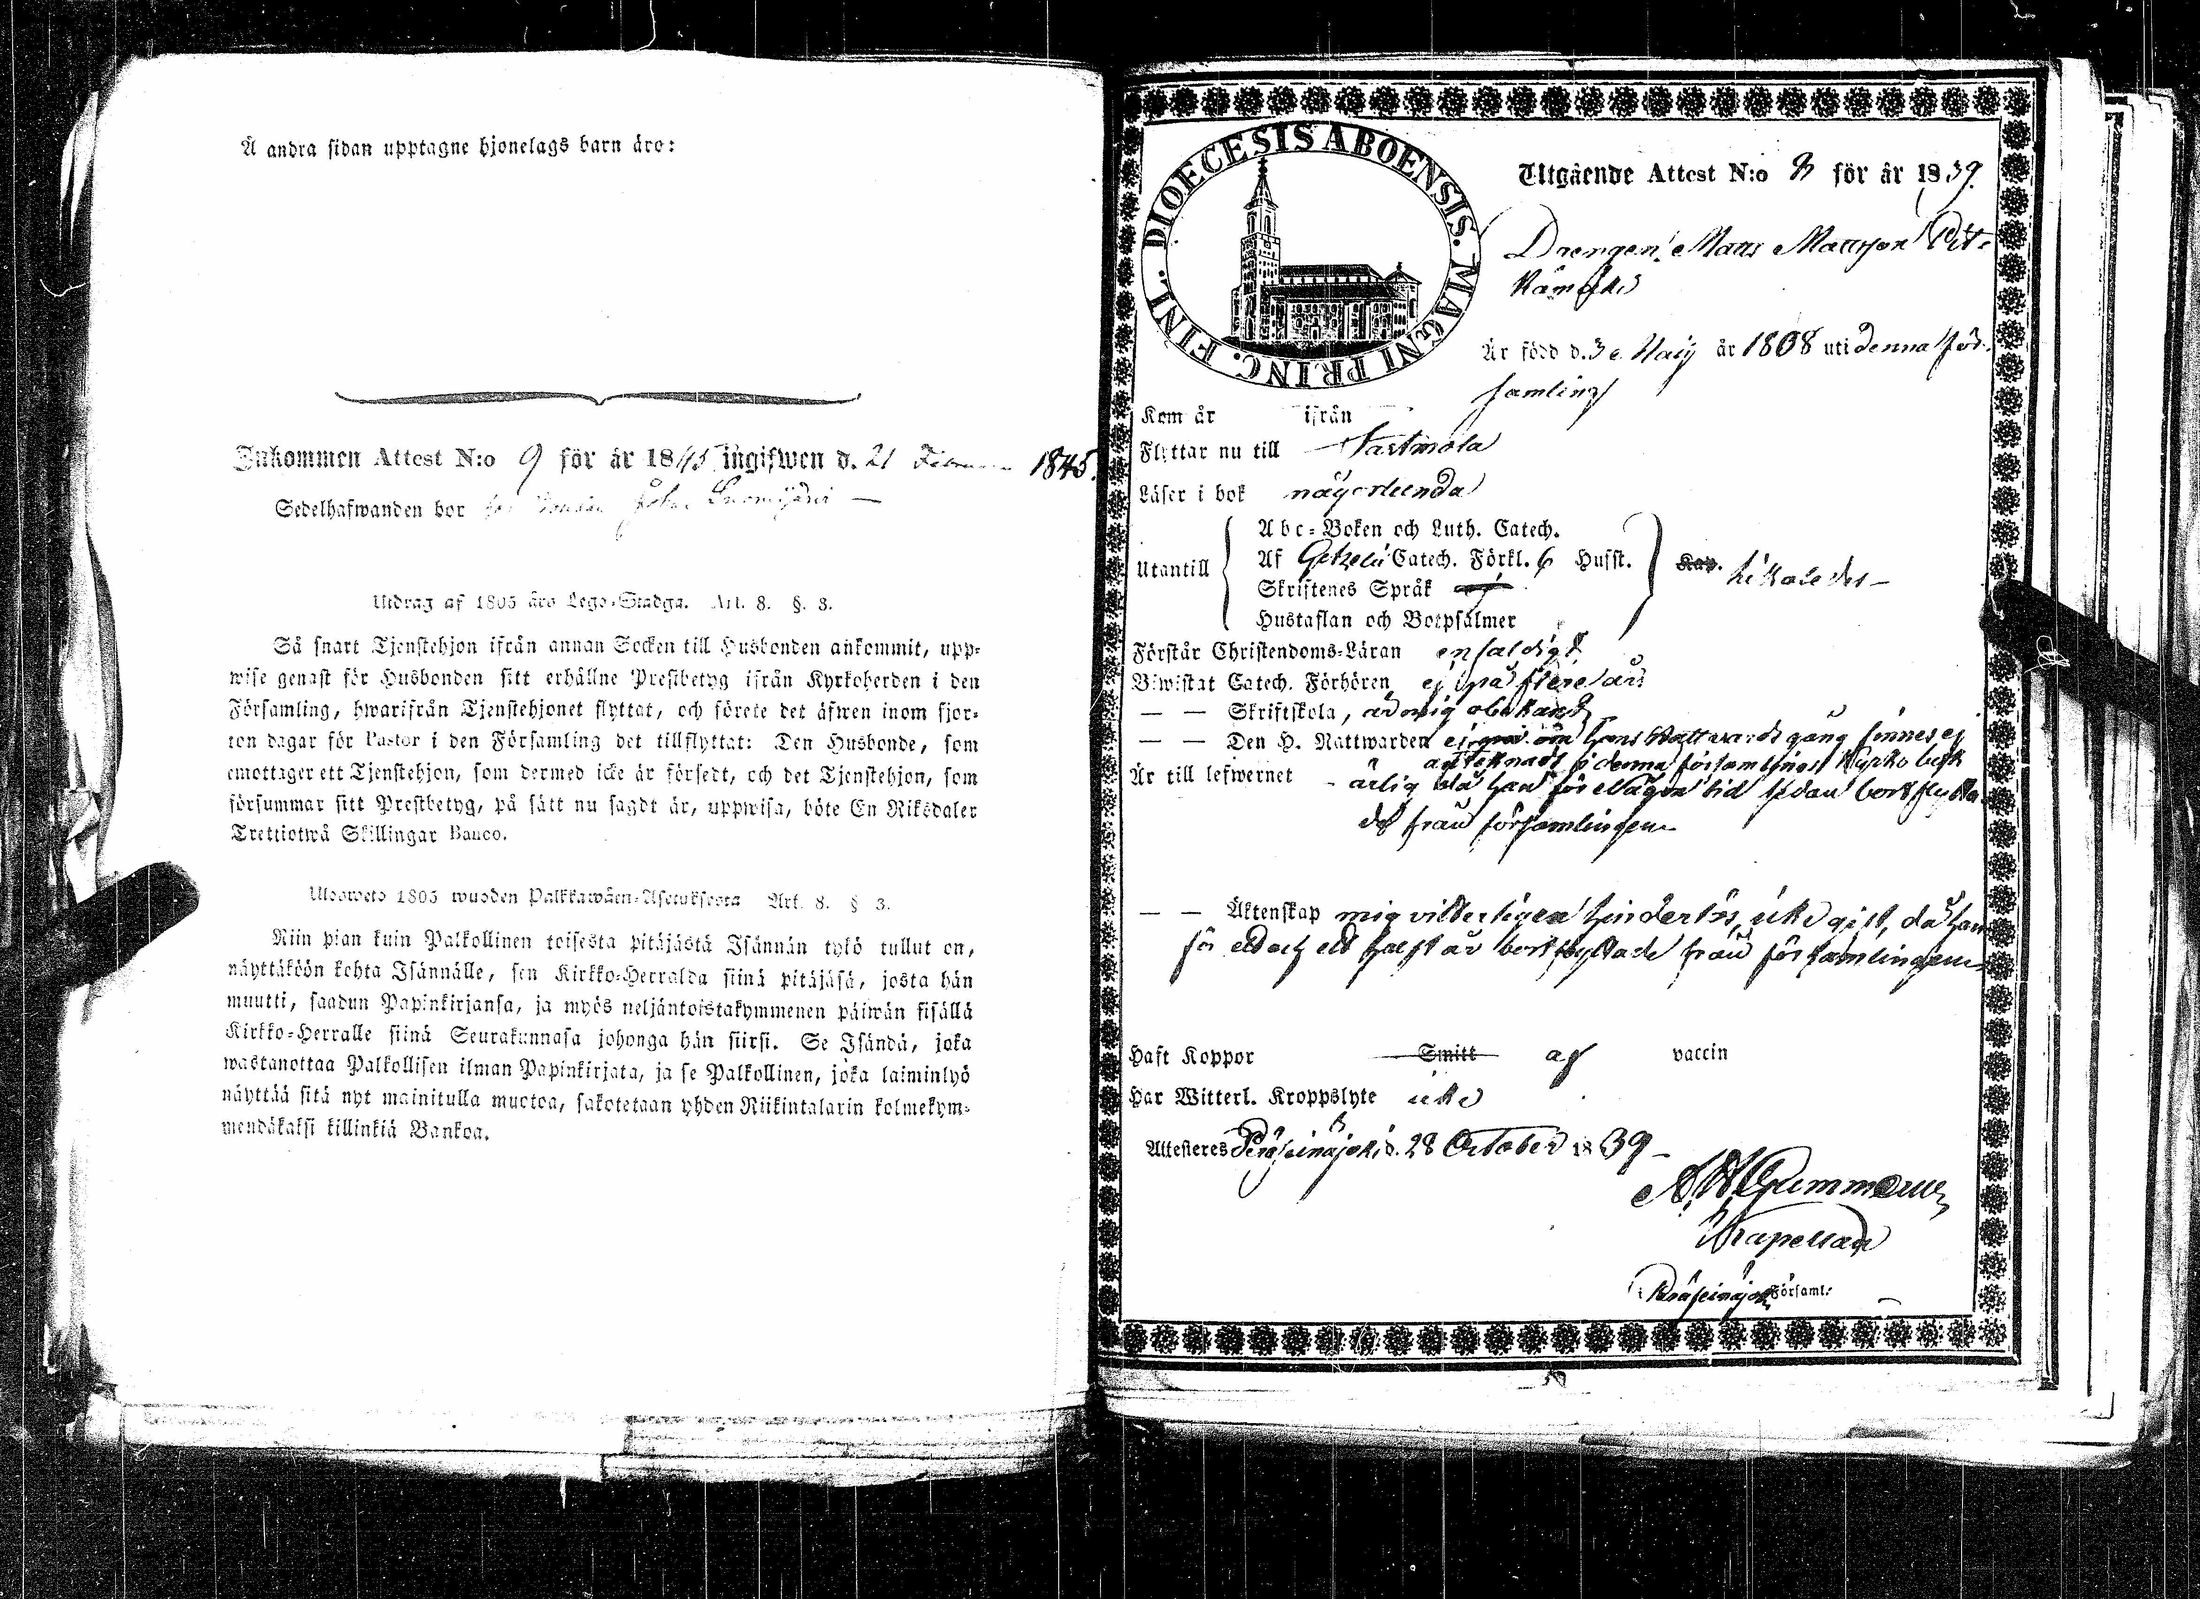 Å andra sidan upptagne hjonelags barn äro:
Inkommen Attest N:o 9 för år 1845 ingifwen d. 21 Februari 1845.
Sedelhafwanden bor hos
Utdrag af 1805 års Lego-Stadga. Art. 8. §. 3.
Så snart Tjenstehjon ifrån annan Socken till Husbonden ankommit, upp-
wise genast för Husbonden sitt erhållne Prestbetyg ifrån Kyrkoherden i den
Församling, hwarifrån Tjenstehjonet flyttat, och förete det äfwen inom fjor-
ton dagar för Pastor i den Församling det tillflyttat: Den Husbonde, som
emottager ett Tjenstehjon, som dermed icke är försedt, och det Tjenstehjon, som
försummar sitt Prestbetyg, på sätt nu sagdt är, uppwisa, böte En Riksdaler
Trettiotwå Skillingar Banco.
Ulosweto 1805 wuoden Palkkawäen-Asetuksesta Art. 8. § 3.
Niin pian kuin Palkollinen toisesta pitäjästä Isännän tykö tullut on,
näyttäköön kohta Isännälle, sen Kirkko-Herralda siinä pitäjäsä, josta hän
muutti, saadun Papinkirjansa, ja myös neljäntoistakymmenen päiwän sisällä
Kirkko-Herralle siinä Seurakunnasa johonga hän siirsi. Se Isändä, joka
wastanottaa Palkollisen ilman Papinkirjata, ja se Palkollinen, joka laiminlyö
näyttää sitä nyt mainitulla muotoa, sakotetaan yhden Riikintalarin kolmekym-
mendäkaksi killinkiä Bankoa.
DIOECESIS ABOENSIS. MAGNI PRINC. FINL.
Utgående Attest N:o för år 1839.
Drengen Matts Mattsson Pit-
kämäki
Är född d. 3 e. Maij år 1808 uti denna för-
samling
Kom år ifrån
Flyttar nu till Tastmola
Läser i bok någorlunda
Utantill
Abc-Boken och Luth. Catech.
Af Getzelii Catech. Förkl. 6 Husst.
Skriftenes Språk
Hustaflan och Botpsalmer
Kap. likaledes
Förstår Christendoms-Läran enfaldigt
Biwistat Catech. Förhören ej på flere år
— — Skriftskola, är mig obekant
— — Den H. Nattwarden ej om hans Nattvards gång finnes ej
antecknadt i denna församlings Kyrko bok
Är till lefwernet ärlig då han för någon tid sedan bortflytta-
de från församlingen
— — Äktenskap mig vitterligen hinderlös, icke gift, då han
för ett och ett halft år bortflyttade från församlingen
Haft Koppor Smitt af vaccin
Har Witterl. Kroppslyte icke
Attesteres Peräseinäjoki d. 28 October 1839
Kapellan
i Peräseinäjoki Församl: